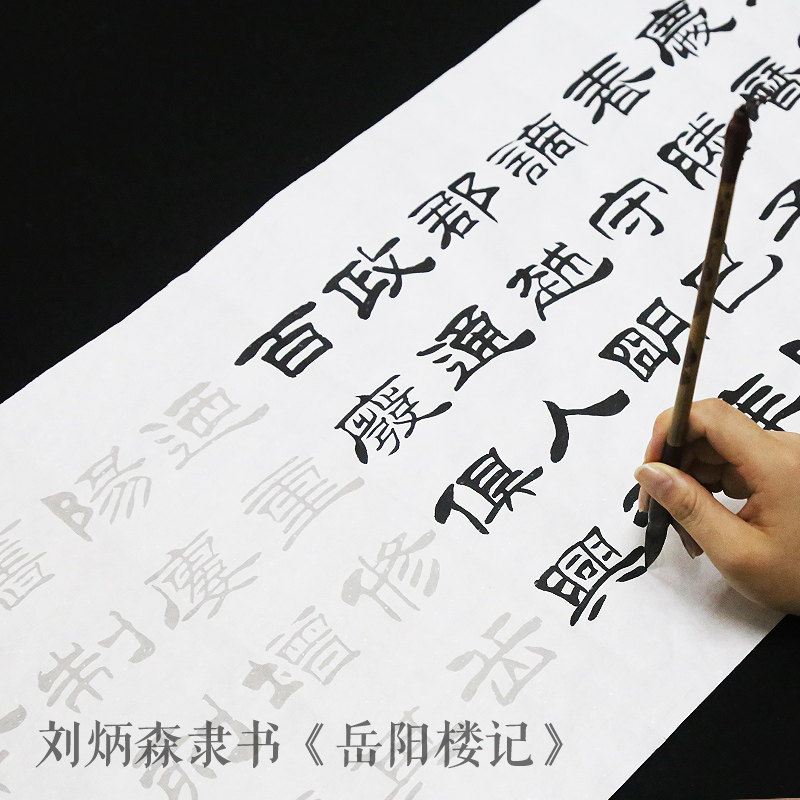 慶曆
春滕子
謫守巴
郡越明年
政通人
百廢俱興
迺重修岳
陽廔增其
舊制
刘炳森隶书《岳阳楼记》